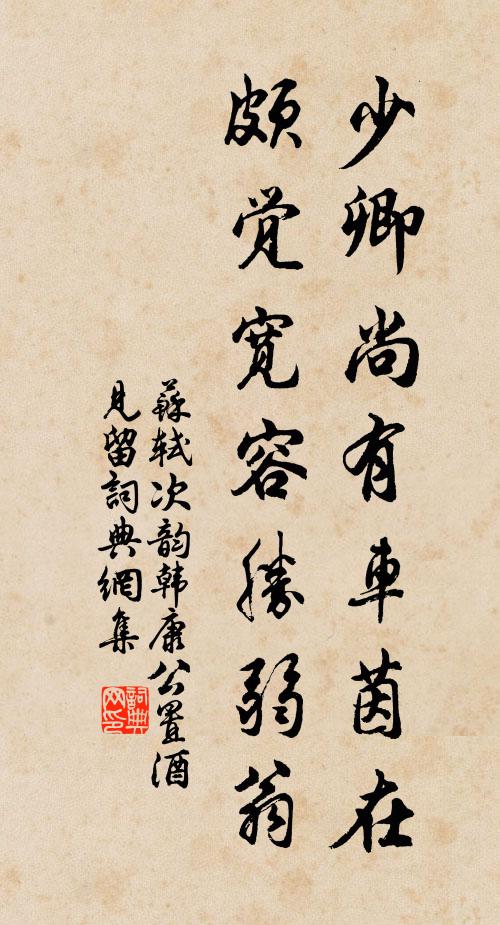 少卿尚有車茵在
頗覺寬容勝弱翁
蘇軾次韵韩康公置酒
見留詞典網集
詞典
网印